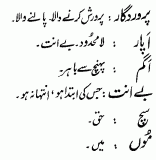 پروردگار: پرورش کرنے والا۔ پالنے والا۔
اَپار: لامحدود۔ بے انت۔
اگم: پہنچ سے باہر۔
بے انت: جس کی ابتدا ہو، انتہا نہ ہو۔
سچ: حق۔
مُوں: میں۔